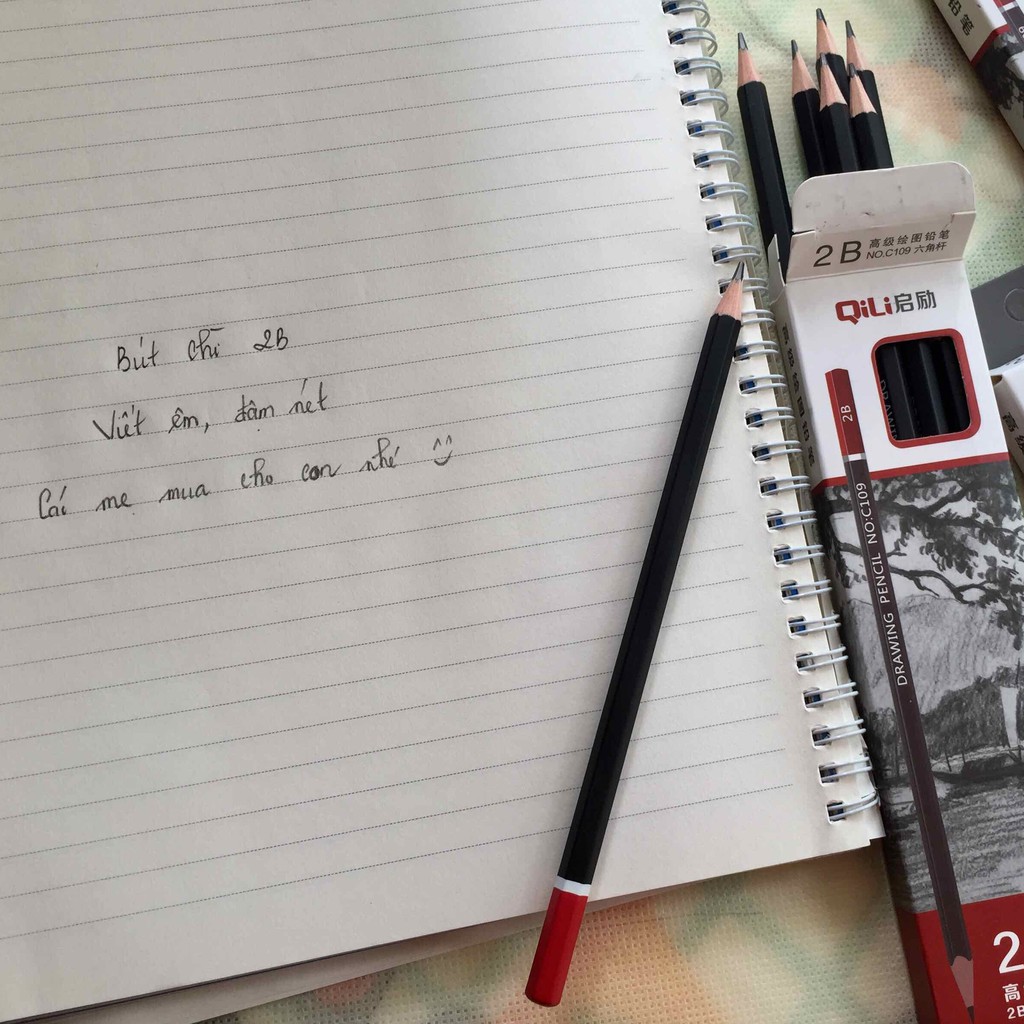 Bút chì 2B
Viết êm, đậm nét
Các mẹ mua cho con nhé
2B 高级绘图铅笔
NO.C109 六角杆
QiLi启励
2B
DRAWING PENCIL NO:C109
DRAW
2
高
2B
铅笔